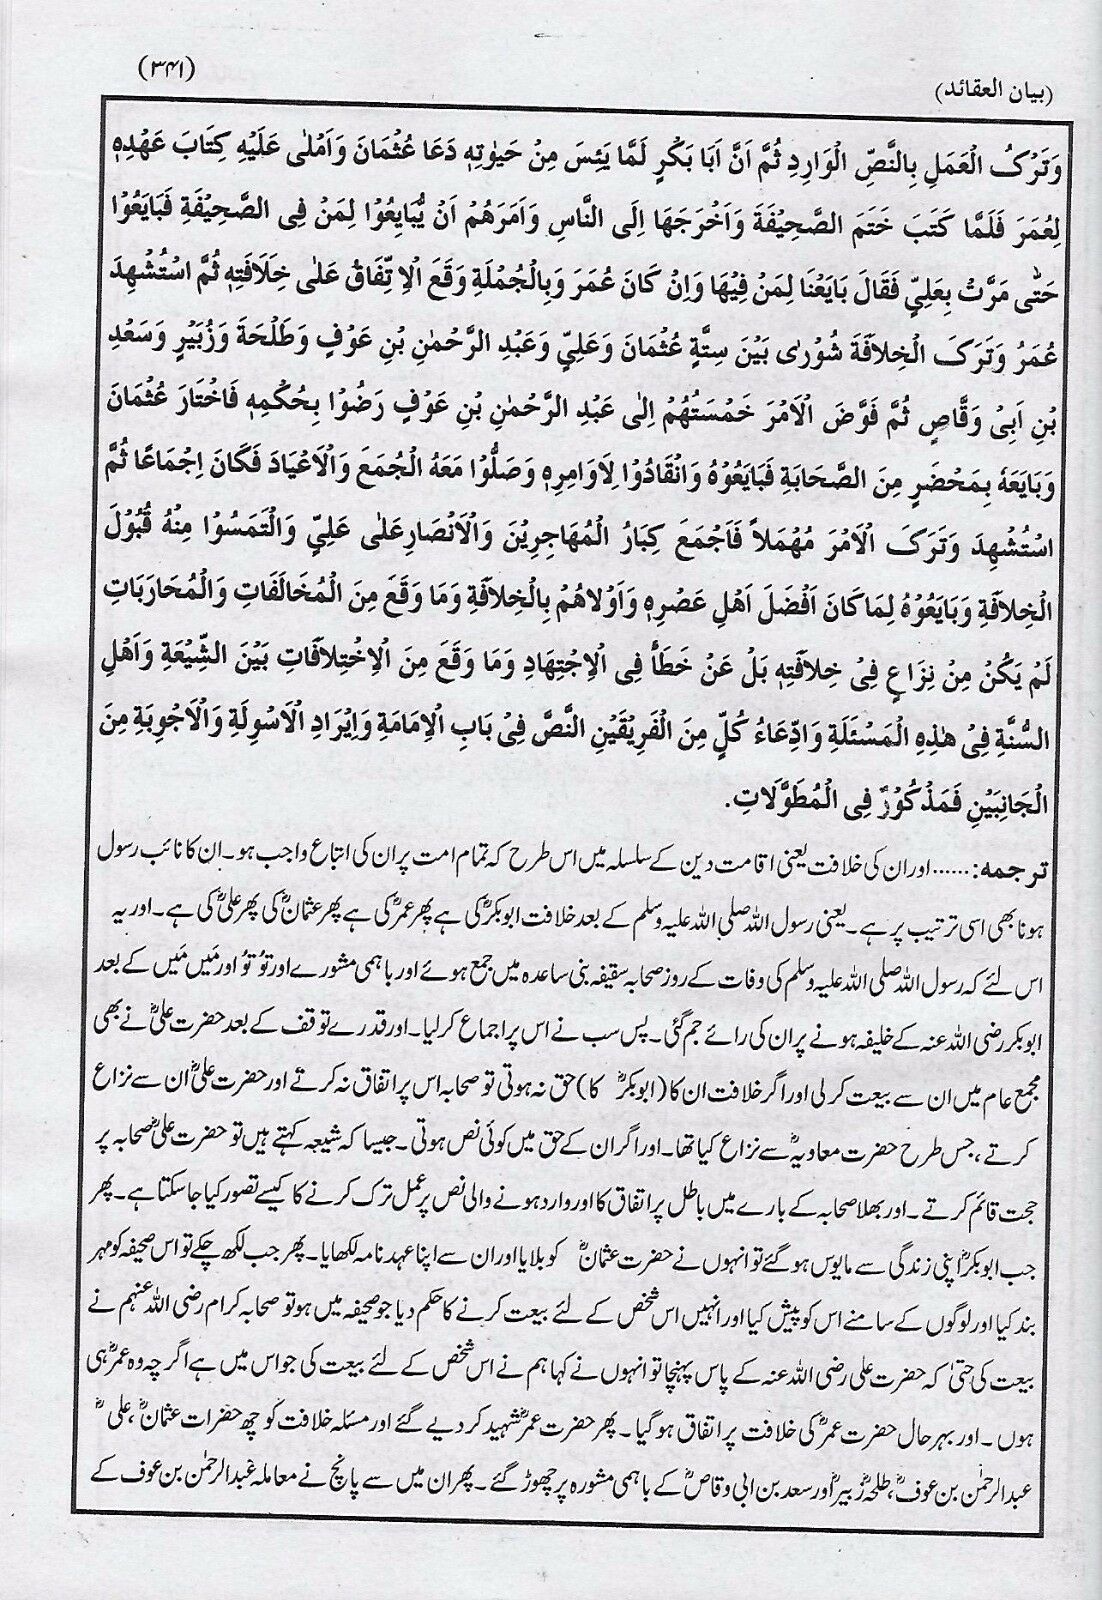 (بیان العقائد)
(۳۴۱)
وَتَرْکُ الْعَمَلِ بِالنَّصِّ الْوَارِدِ ثُمَّ اَنَّ اَبَا بَکْرٍ لَمَّا یَئِسَ مِنْ حَیٰوتِهٖ دَعَا عُثْمَانَ وَاَمْلٰی عَلَیْهِ کِتَابَ عَهْدِهٖ
لِعُمَرَ فَلَمَّا کَتَبَ خَتَمَ الصَّحِیْفَةَ وَاَخْرَجَهَا اِلَی النَّاسِ وَاَمَرَهُمْ اَنْ یُّبَایِعُوْا لِمَنْ فِی الصَّحِیْفَةِ فَبَایَعُوْا
حَتّٰی مَرَّتْ بِعَلِیٍّ فَقَالَ بَایَعْنَا لِمَنْ فِیْهَا وَاِنْ کَانَ عُمَرَ وَبِالْجُمْلَةِ وَقَعَ الْاِتِّفَاقُ عَلٰی خِلَافَتِهٖ ثُمَّ اسْتُشْهِدَ
عُمَرُ وَتَرَکَ الْخِلَافَةَ شُوْرٰی بَیْنَ سِتَّةٍ عُثْمَانَ وَعَلِیٍّ وَعَبْدِ الرَّحْمٰنِ بْنِ عَوْفٍ وَطَلْحَةَ وَزُبَیْرٍ وَسَعْدِ
بْنِ اَبِیْ وَقَّاصٍ ثُمَّ فَوَّضَ الْاَمْرَ خَمْسَتُهُمْ اِلٰی عَبْدِ الرَّحْمٰنِ بْنِ عَوْفٍ رَضُوْا بِحُکْمِهٖ فَاخْتَارَ عُثْمَانَ
وَبَایَعَهٗ بِمَحْضَرٍ مِنَ الصَّحَابَةِ فَبَایَعُوْهُ وَانْقَادُوْا لِاَوَامِرِهٖ وَصَلُّوْا مَعَهُ الْجُمَعَ وَالْاَعْیَادَ فَکَانَ اِجْمَاعًا ثُمَّ
اسْتُشْهِدَ وَتَرَکَ الْاَمْرَ مُهْمَلاً فَاَجْمَعَ کِبَارُ الْمُهَاجِرِیْنَ وَالْاَنْصَارِ عَلٰی عَلِیٍّ وَالْتَمَسُوْا مِنْهُ قُبُوْلَ
الْخِلَافَةِ وَبَایَعُوْهُ لِمَا کَانَ اَفْضَلَ اَهْلِ عَصْرِهٖ وَاَوْلَاهُمْ بِالْخِلَافَةِ وَمَا وَقَعَ مِنَ الْمُخَالَفَاتِ وَالْمُحَارَبَاتِ
لَمْ یَکُنْ مِنْ نِزَاعٍ فِیْ خِلَافَتِهٖ بَلْ عَنْ خَطَأٍ فِی الْاِجْتِهَادِ وَمَا وَقَعَ مِنَ الْاِخْتِلَافَاتِ بَیْنَ الشِّیْعَةِ وَاَهْلِ
السُّنَّةِ فِیْ هٰذِهِ الْمَسْئَلَةِ وَادِّعَاءُ کُلٍّ مِنَ الْفَرِیْقَیْنِ النَّصَّ فِیْ بَابِ الْاِمَامَةِ وَاِیْرَادِ الْاَسْوِلَةِ وَالْاَجْوِبَةِ مِنَ
الْجَانِبَیْنِ فَمَذْکُوْرٌ فِی الْمُطَوَّلَاتِ.
ترجمہ:...... اور ان کی خلافت یعنی اقامت دین کے سلسلہ میں اس طرح کہ تمام امت پر ان کی اتباع واجب ہو۔ ان کا نائب رسول
ہونا بھی اسی ترتیب پر ہے۔ یعنی رسول اللہ صلی اللہ علیہ وسلم کے بعد خلافت ابوبکرؓ کی ہے پھر عمرؓ کی ہے پھر عثمانؓ کی پھر علیؓ کی ہے۔ اور یہ
اس لئے کہ رسول اللہ صلی اللہ علیہ وسلم کی وفات کے روز صحابہ سقیفہ بنی ساعدہ میں جمع ہوئے اور باہمی مشورے اور تو تو اور مَیں مَیں کے بعد
ابوبکر رضی اللہ عنہ کے خلیفہ ہونے پر ان کی رائے جم گئی۔ پس سب نے اس پر اجماع کر لیا۔ اور قدرے توقف کے بعد حضرت علیؓ نے بھی
مجمع عام میں ان سے بیعت کر لی اور اگر خلافت ان کا (ابوبکرؓ کا) حق نہ ہوتی تو صحابہ اس پر اتفاق نہ کرتے اور حضرت علیؓ ان سے نزاع
کرتے، جس طرح حضرت معاویہؓ سے نزاع کیا تھا۔ اور اگر ان کے حق میں کوئی نص ہوتی۔ جیسا کہ شیعہ کہتے ہیں تو حضرت علیؓ صحابہ پر
حجت قائم کرتے۔ اور بھلا صحابہ کے بارے میں باطل پر اتفاق کا اور وارد ہونے والی نص پر عمل ترک کرنے کا کیسے تصور کیا جا سکتا ہے۔ پھر
جب ابوبکرؓ اپنی زندگی سے مایوس ہو گئے تو انہوں نے حضرت عثمانؓ کو بلایا اور ان سے اپنا عہد نامہ لکھایا۔ پھر جب لکھ چکے تو اس صحیفہ کو مہر
بند کیا اور لوگوں کے سامنے اس کو پیش کیا اور انہیں اس شخص کے لئے بیعت کرنے کا حکم دیا جو صحیفہ میں ہو تو صحابہ کرام رضی اللہ عنہم نے
بیعت کی حتیٰ کہ حضرت علی رضی اللہ عنہ کے پاس پہنچا تو انہوں نے کہا ہم نے اس شخص کے لئے بیعت کی جو اس میں ہے اگر چہ وہ عمرؓ ہی
ہوں۔ اور بہر حال حضرت عمرؓ کی خلافت پر اتفاق ہو گیا۔ پھر حضرت عمرؓ شہید کر دیے گئے اور مسئلہ خلافت کو چھ حضرات عثمانؓ، علیؓ
عبدالرحمٰن بن عوفؓ، طلحہؓ زبیرؓ اور سعد بن ابی وقاصؓ کے باہمی مشورہ پر چھوڑ گئے۔ پھر ان میں سے پانچ نے معاملہ عبدالرحمٰن بن عوف کے